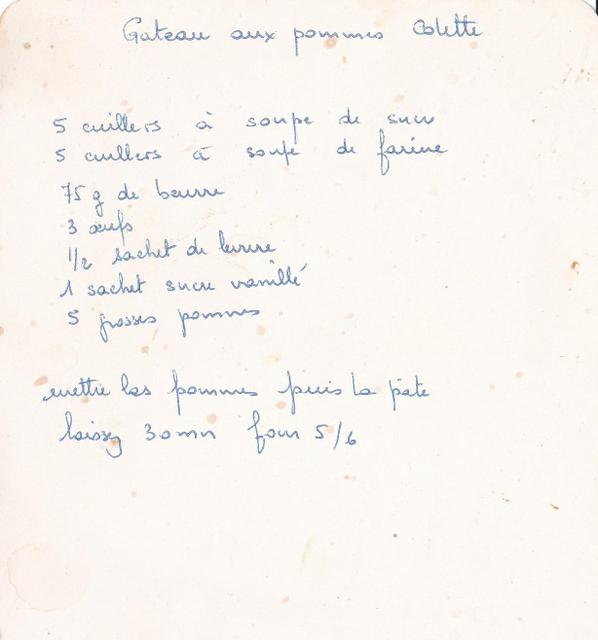 Gateau aux pommes Colette
5 cuillers à soupe de sucre
5 cuillers à soupe de farine
75 g de beurre
3 œufs
1/2 sachet de levure
1 sachet sucre vanillé
5 grosses pommes
mettre les pommes puis la pâte
laissez 30mn four 5/6